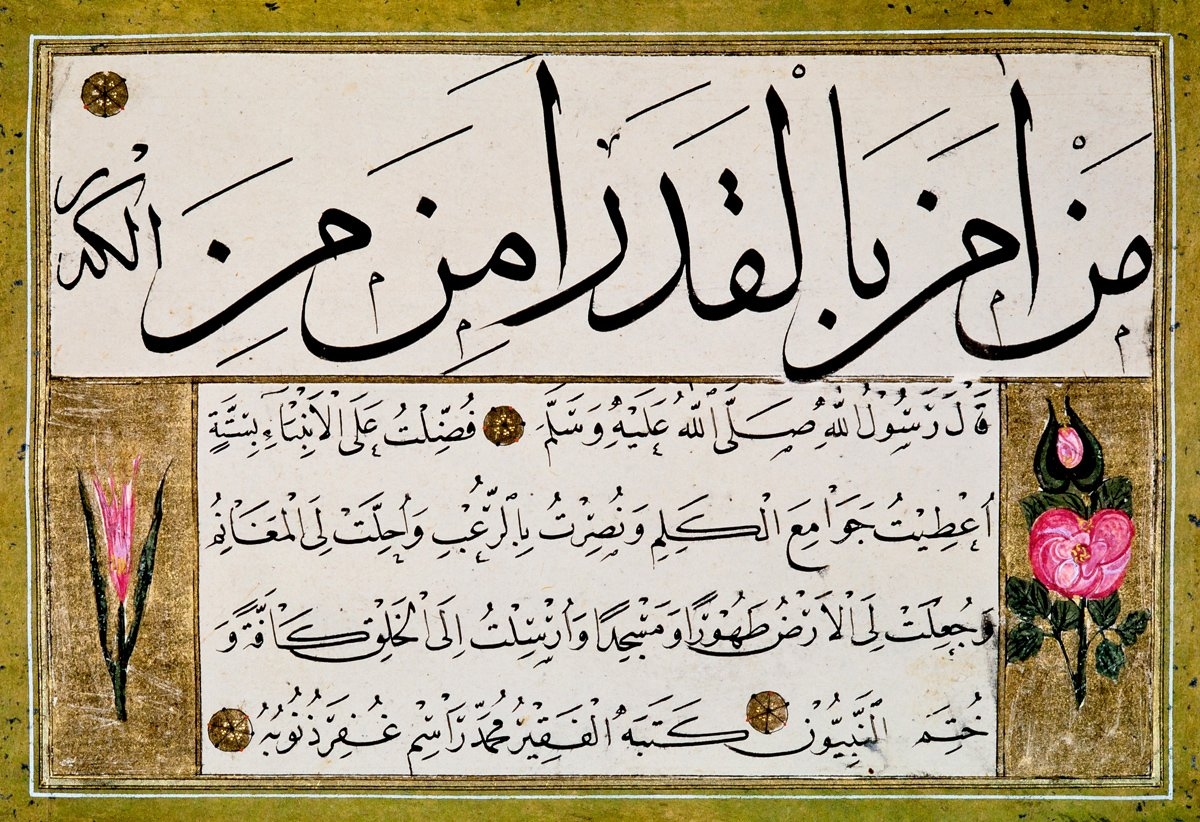 مَنْ اٰمَنَ بِالْقَدَرِ اَمِنَ مِنَ الْكَدَرِ
قَالَ رَسُولُ اللّٰهِ صَلَّى اللّٰهُ عَلَيْهِ وَسَلَّمَ فُضِّلْتُ عَلَى الْاَنْبِيَاءِ بِسِتَّةٍ
اُعْطِيتُ جَوَامِعَ الْكَلِمِ وَنُصِرْتُ بِالرُّعْبِ وَاُحِلَّتْ لِيَ الْمَغَانِمُ
وَجُعِلَتْ لِيَ الْاَرْضُ طَهُورًا وَمَسْجِدًا وَاُرْسِلْتُ اِلَى الْخَلْقِ كَافَّةً وَ
خُتِمَ النَّبِيُّونَ كَتَبَهُ الْفَقِيرُ مُحَمَّد رَاسِمْ غُفِرَ ذُنُوبُهُ